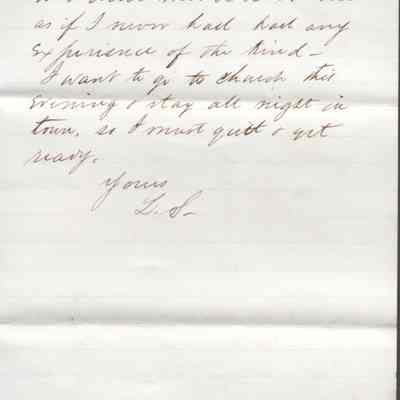 as if I never had had any
Experience of the kind –
I want to go to church this
Evening & stay all night in
town, so I must quit & get
ready.
Yours
L. S–